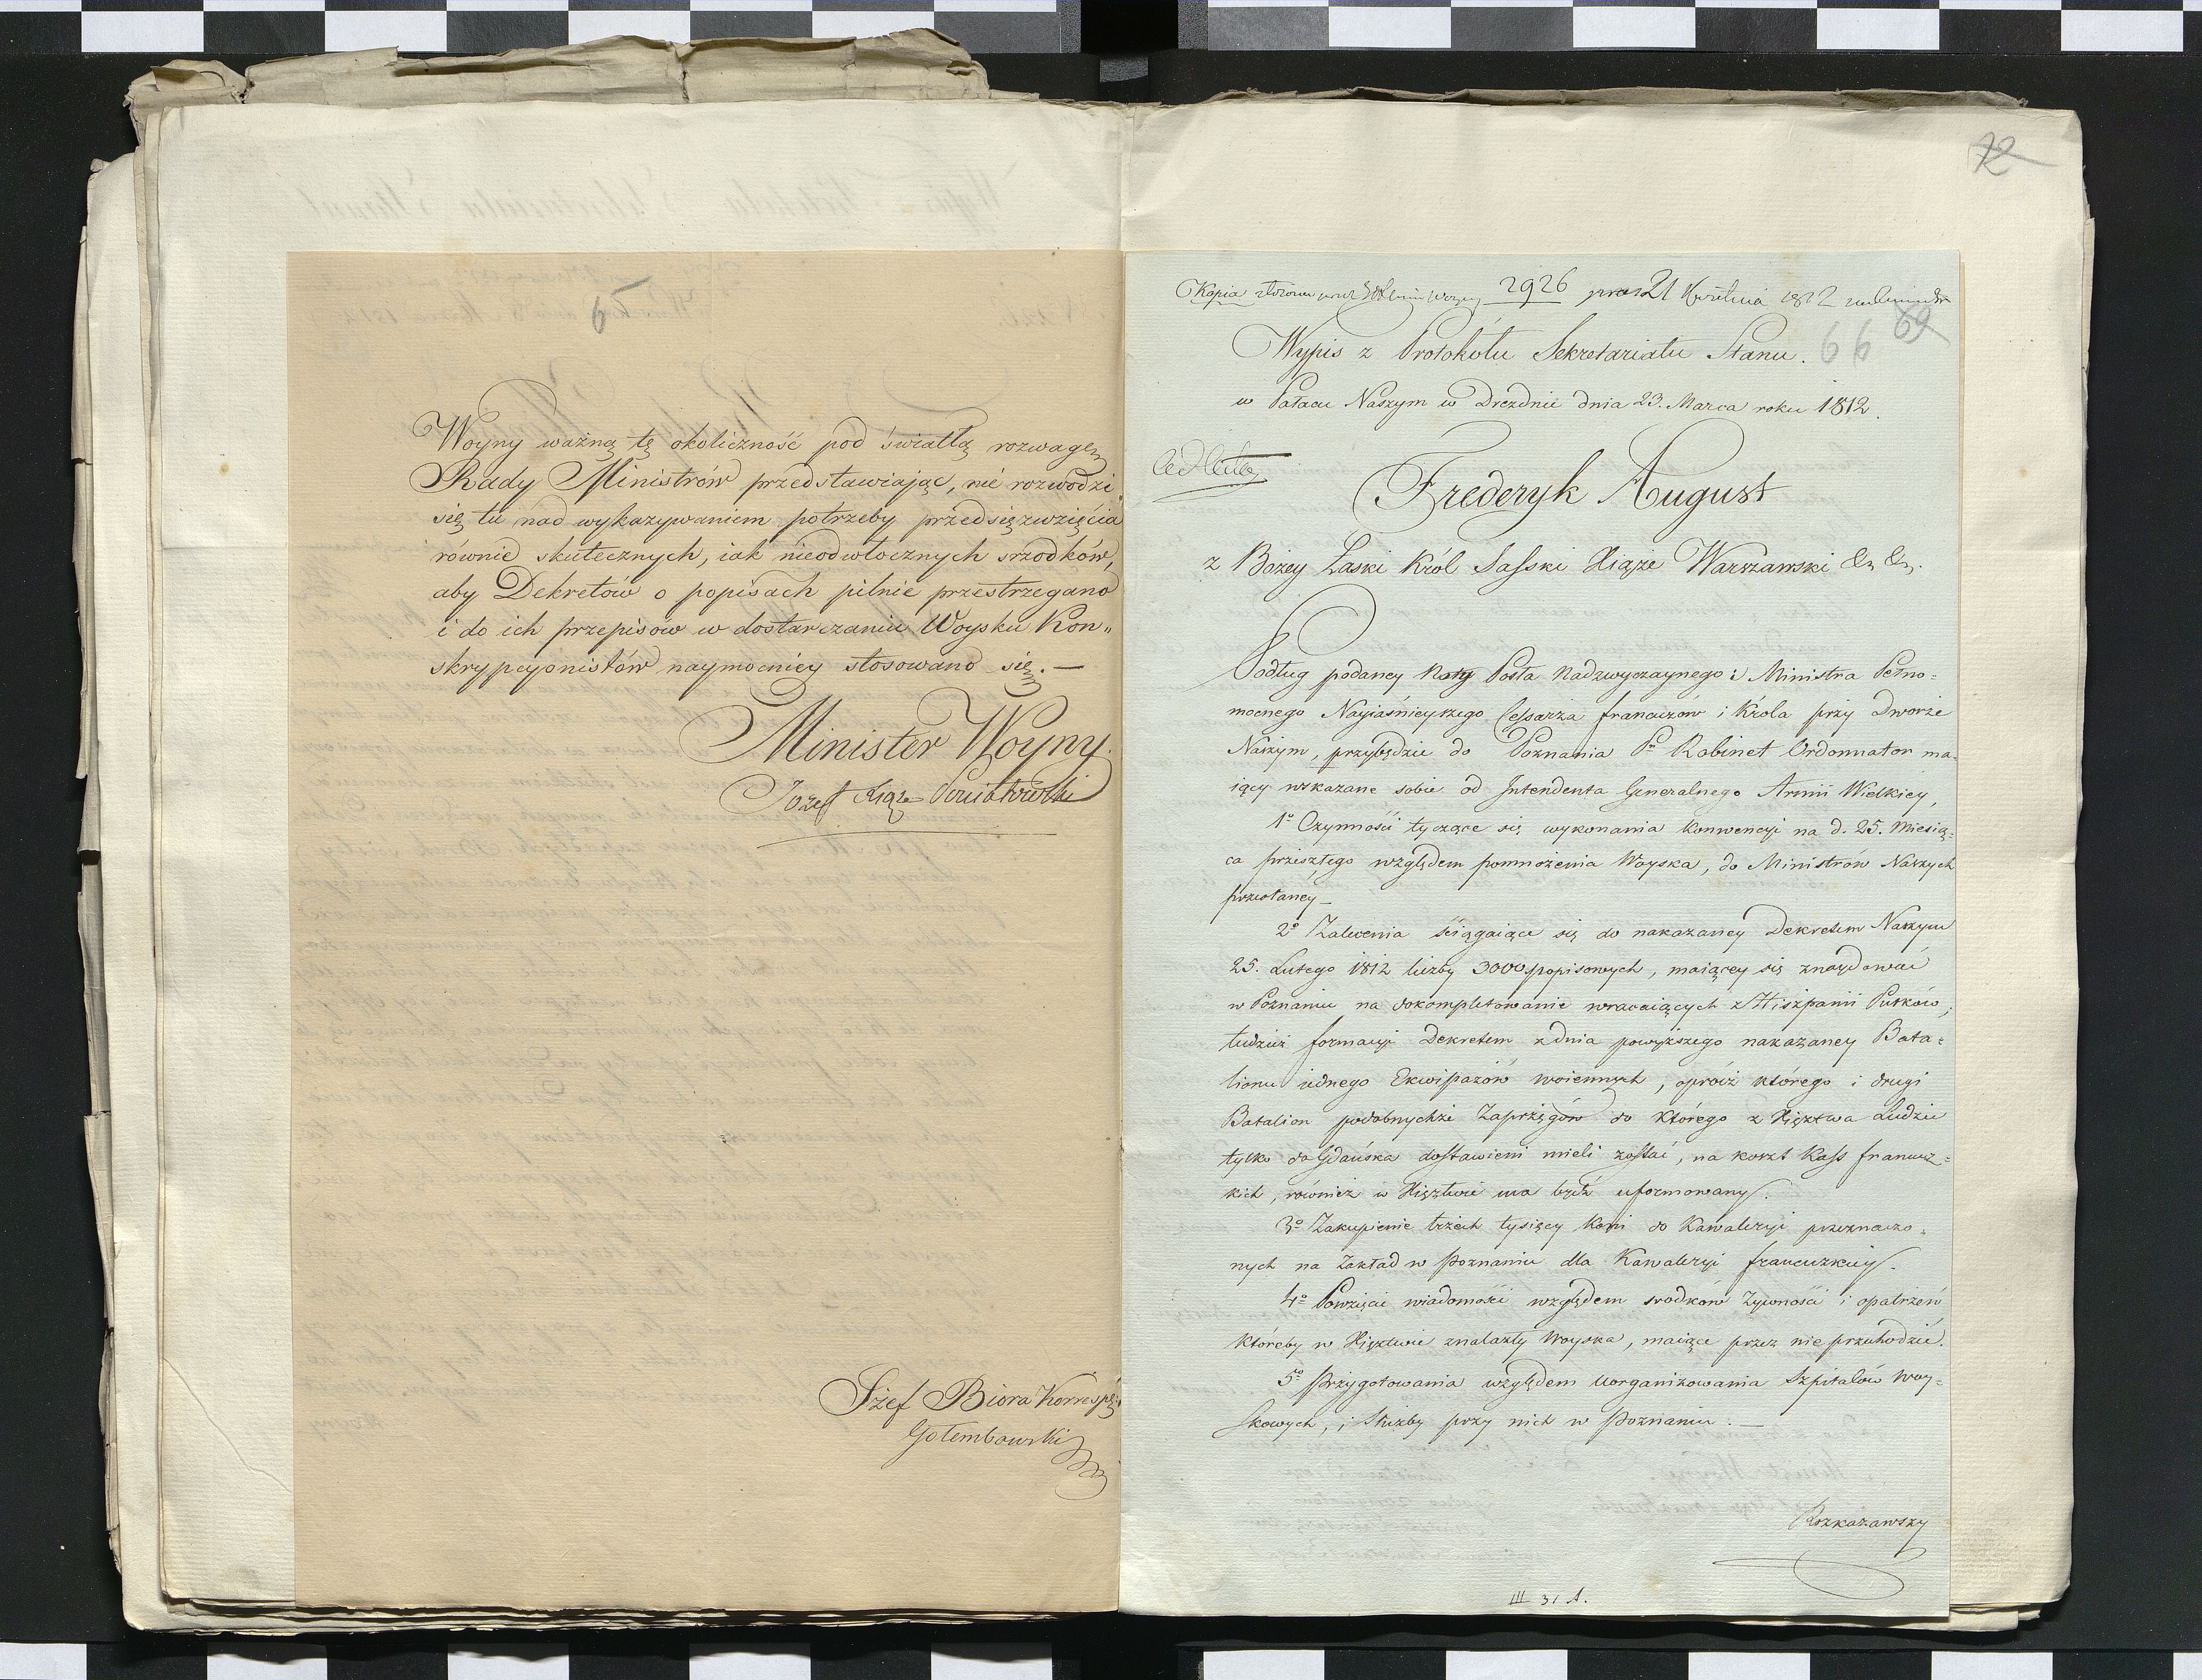 65
Woyny ważną tę okoliczność pod światłą rozwagę
Rady Ministrów przedstawiając, nie rozwodzi
się tu nad wykazywaniem potrzeby przedsięwzięcia
równie skutecznych, iak nieodwłocznych srzodków,
aby Dekretów o popisach pilnie przestrzegano
i do ich przepisów w dostarczaniu Woysku Kon„
skrypcyonistów naymocniey stosowano się. —
Minister Woyny.
Jozef Xiąże Poniatowski
Szef Biora Korresp:
Gołembowski
72
Kopia 2926 21 Kwietnia 1812
69
Wypis z Protokółu Sekretariatu Stanu. 66
w Pałacu Naszym w Dreznie dnia 23. Marca roku 1812.
Fryderyk August
z Bożey Łaski Król Saski Xiąże Warszawski &c. &c.
Podług podaney Noty Posła Nadzwyczaynego i Ministra Pełno=
mocnego Nayiaśnieyszego Cesarza francuzów i Króla przy Dworze
Naszym, przybędzie do Poznania Pn Robinet Ordonnator ma=
iący wskazane sobie od Intendenta Generalnego Armii Wielkiey,
1o Czynności tyczące się wykonania Konwencyi na d. 25. Miesią=
ca przeszłego względem pomnożenia Woyska, do Ministrów Naszych
przesłaney —
2o Zalecenia ściągaiące się do nakazaney Dekretem Naszym
25. Lutego 1812 liczby 3000 popisowych, maiącey się znaydować
w Poznaniu na dokompletowanie wracaiących z Hiszpanii Pułków;
tudzież formacyi Dekretem z dnia powyższego nakazaney Bata=
lionu iednego Ekwipazów woiennych, oprócz którego i drugi
Batalion podobnychże Zaprzęgów do którego z Xięztwa Ludzie
tylko do Gdańska dostawieni mieli zostać, na koszt Kass francuz=
kich, również w Xięztwie ma bydź uformowany.
3o Zakupienie trzech tysięcy koni do Kawaleryi przeznaczo=
nych na Zakład w Poznaniu dla Kawaleryi francuzkiey.
4o Powzięcie wiadomości względem srodków żywności i opatrzeń
któreby w Xięztwie znalazły Woyska, maiące przez nie przechodzić.
5o Przygotowania względem uorganizowania Szpitalów Woy=
skowych, i służby przy nich w Poznaniu. —
Rozkazawszy
III 31 A.